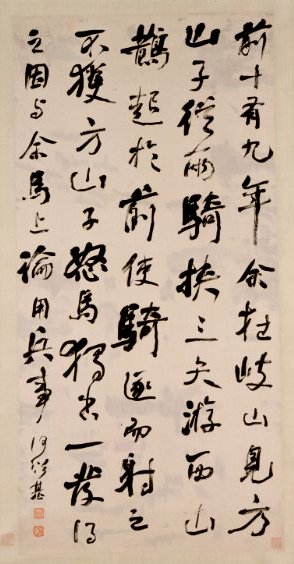 前十有九年余在岐山見方
山子從兩騎挾三矢游西山
鵲起於前使騎逐而射之
不獲方山子怒馬獨出一發得
之因与余馬上論用兵事